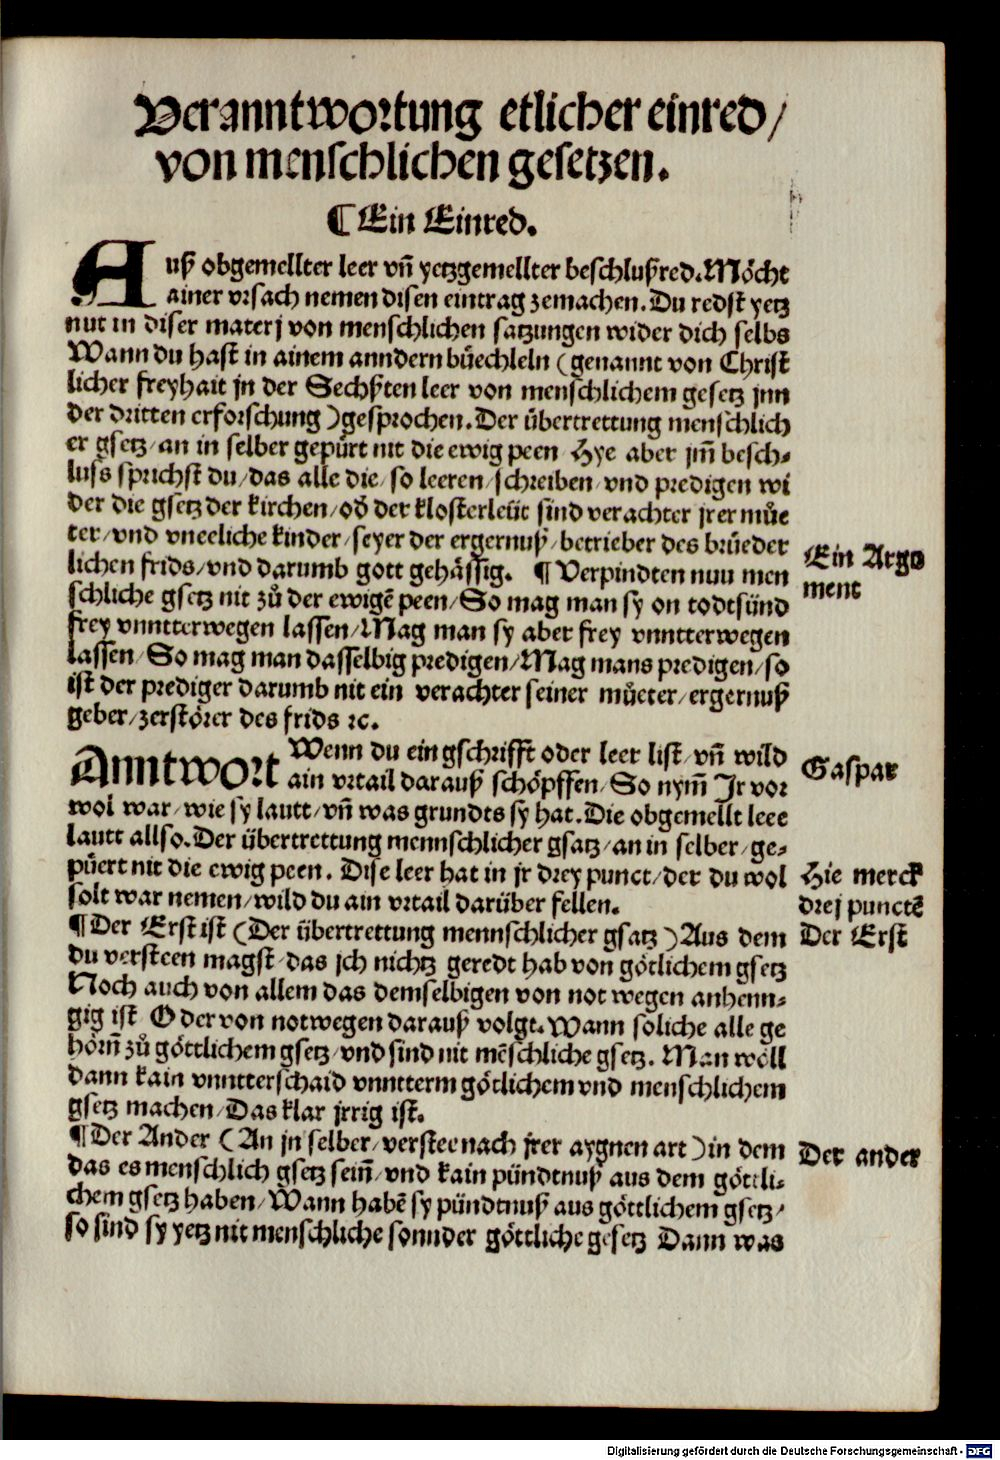 Veranntwortung etlicher einred/
von menschlichen gesetzen.
¶ Ein Einred.
Auß obgemellter leer vñ yetzgemellter beschlußred. Möcht
ainer vrsach nemen disen eintrag zemachen. Du redst yetz
nut in diser materj von menschlichen satzungen wider dich selbs
Wann du hast in ainem anndern büechleln (genannt von Christ
licher freyhait jn der Sechsten leer von menschlichem gesetz jnn
der dritten erforschung) gesprochen. Der übertrettung menschlich
er gsetz/ an in selber gepürt nit die ewig peen Hye aber jm̃ besch-
luss sprichst du/ das alle die/ so leeren/ schreiben/ vnd predigen wi
der die gsetz der kirchen/ oð der klosterleüt sind verachter jrer můe
ter/ vnd vneeliche kinder/ seyer der ergernuß/ betrieber des brüeder
lichen frids/ vnd darumb gott gehässig. ¶ Verpindten nuu men
schliche gsetz nit zů der ewigẽ peen/ So mag man sy on todtsünd
frey vnntterwegen lassen/ Mag man sy aber frey vnntterwegen
lassen/ So mag man dasselbig predigen/ Mag mans predigen/ so
ist der prediger darumb nit ein verachter seiner můeter/ ergernuß
geber/ zerstörer des frids ꝛc.
Ein Argu
ment
Anntwort Wenn du ein gschrifft oder leer list/ vñ wild
ain vrtail darauß schöpffen/ So nym̃ Ir vor
wol war/ wie sy lautt/ vñ was grundts sy hat. Die obgemellt leee
lautt allso. Der übertrettung mennschlicher gsatz/ an in selber/ ge-
püert nit die ewig peen. Dise leer hat in jr drey punct/ der du wol
solt war nemen/ wild du ain vrtail darüber fellen.
Gaspar
Hie merck
drej punctẽ
¶ Der Erst ist (Der übertrettung mennschlicher gsatz) Aus dem
du versteen magst/ das jch nichtz geredt hab von götlichem gsetz
Noch auch von allem das demselbigen von not wegen anhenn-
gig ist Oder von notwegen darauß volgt. Wann soliche alle ge
hörñ zů göttlichem gsetz/ vnd sind nit mẽschliche gsetz. Man wöll
dann kain vnntterschaid vnntterm götlichem vnd menschlichem
gsetz machen/ Das klar jrrig ist.
Der Erst
¶ Der Ander (An jn selber/ verstee nach jrer aygnen art) in dem
das es menschlich gsetz seiñ/ vnd kain pündtnuß aus dem göttli-
chem gsetz haben/ Wann habẽ sy pündtnuß aus göttlichem gsetz/
so sind sy yetz nit menschliche sonnder göttliche gesetz Dann was
Der ander
Digitalisierung gefördert durch die Deutsche Forschungsgemeinschaft - DFG